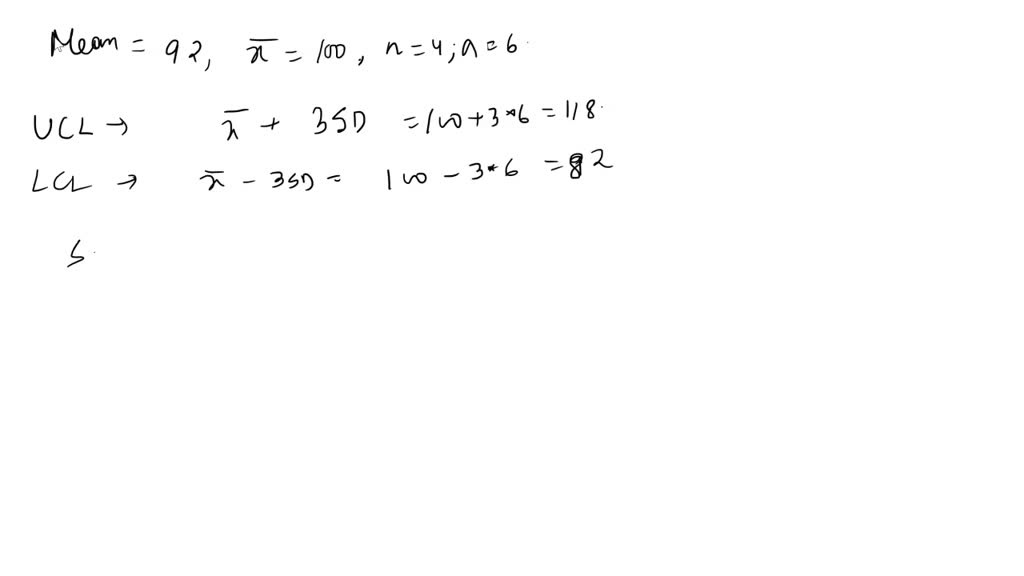 Mean = 92, x̄ = 100, n = 4; n = 6
UCL → x̄ + 3SD = 100 + 3*6 = 118
LCL → x̄ - 3SD = 100 - 3*6 = 82
S